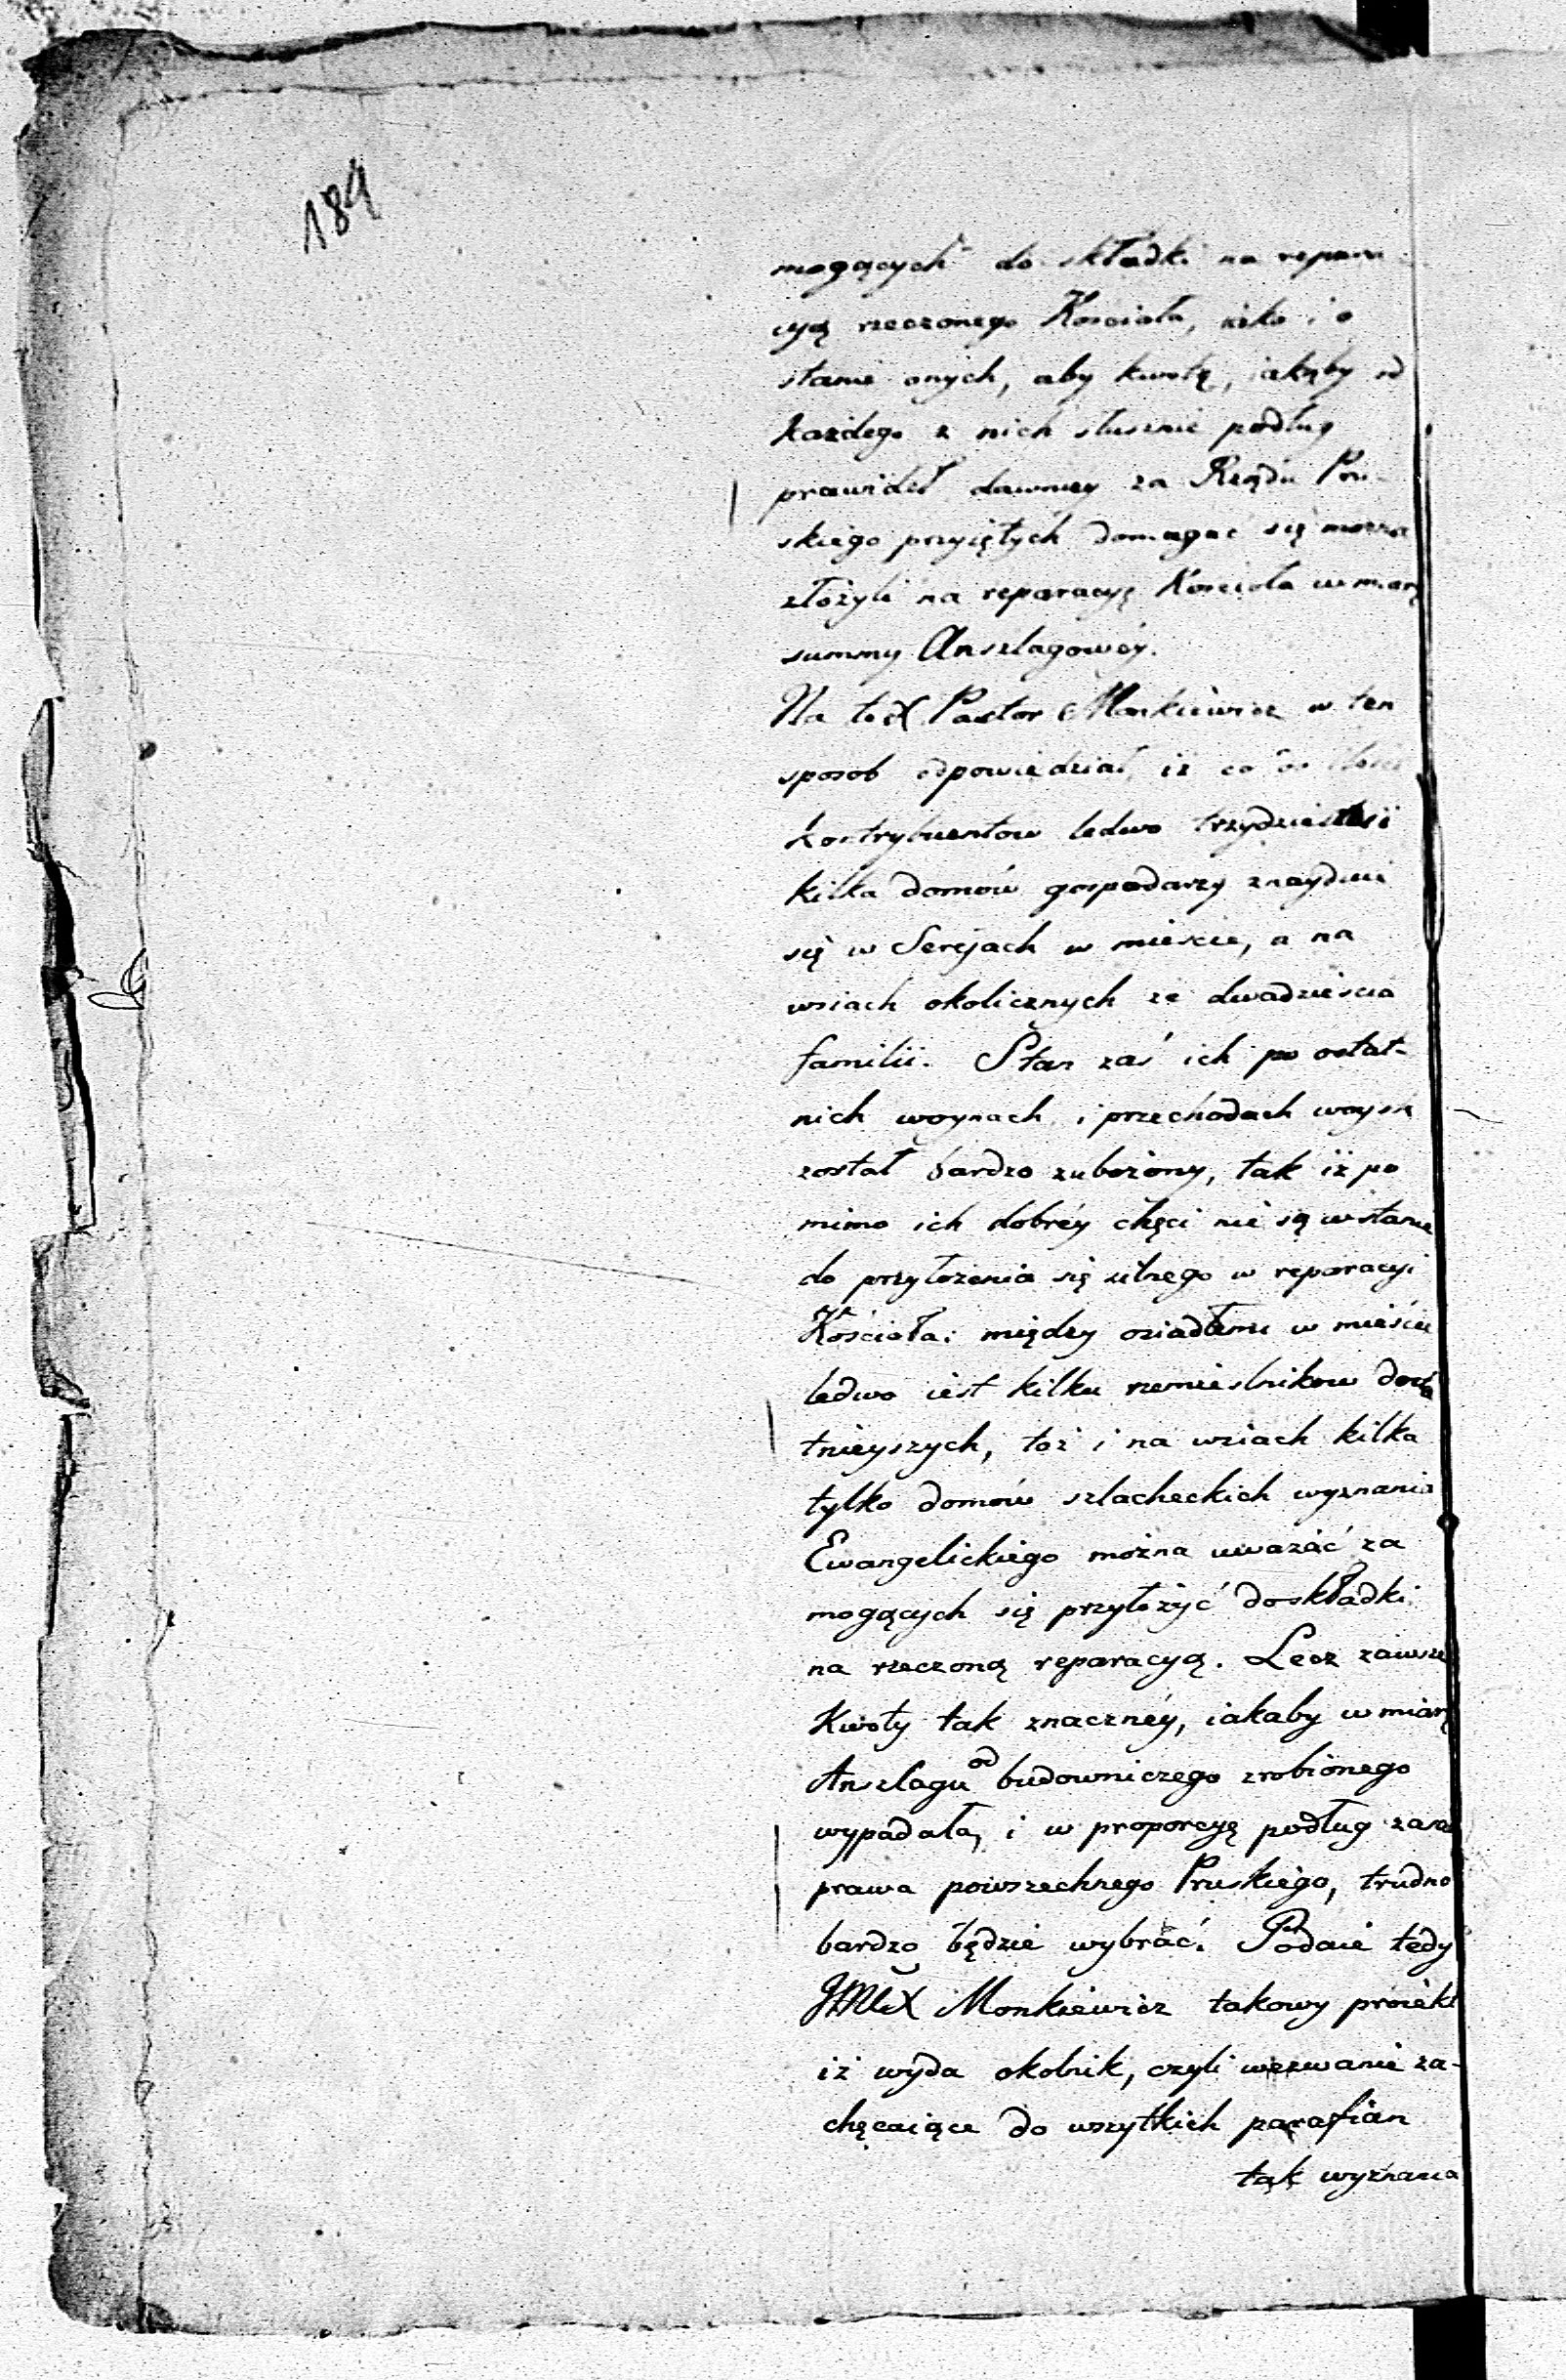 184
mogących do składki na repara
cyą rzeczonego Kościoła, iako i o
stanie onych, aby kwotę, iakąby od
każdego z nich słusznie podług
prawideł dawniey za Rządu Pru-
skiego przyiętych domagac się można
złożyli na reparacyę Kościoła w miarę
summy Anszlagowéy.
Na to X Pastor Monkiewicz w ten
sposob odpowiedział iż co do ilości
kontrybuentow ledwo trzydzieści
kilka domów gospodarzy znayduie
się w Serejach w mieście, a na
wsiach okolicznych ze dwadzieścia
familii. Stan zaś ich po ostat-
nich woynach i przechodach woysk
został bardzo zubożony, tak iż po
mimo ich dobréy chęci nie są w stanie
do przyłożenia się silnego w reparacyi
Kościoła: między osiadłemi w mieście
ledwo iest kilku rzemieslnikow dosta
tnieyszych, toż i na wsiach kilka
tylko domów szlacheckich wyznania
Ewangelickiego można uważać za
mogących się przyłożyć do składki
na rzeczoną reparacyą. Lecz zawsze
Kwoty tak znacznéy, iakaby w miarę
Anszlagu od budowniczego zrobionego
wypadała, i w proporcyę podług zasad
prawa powszechnego Pruskiego, trudno
bardzo będzie wybrać. Podaie tedy
JMX Monkiewicz takowy proiekt
iż wyda okolnik, czyli wezwanie za-
chęcaiące do wszytkich parafian
tak wyznania